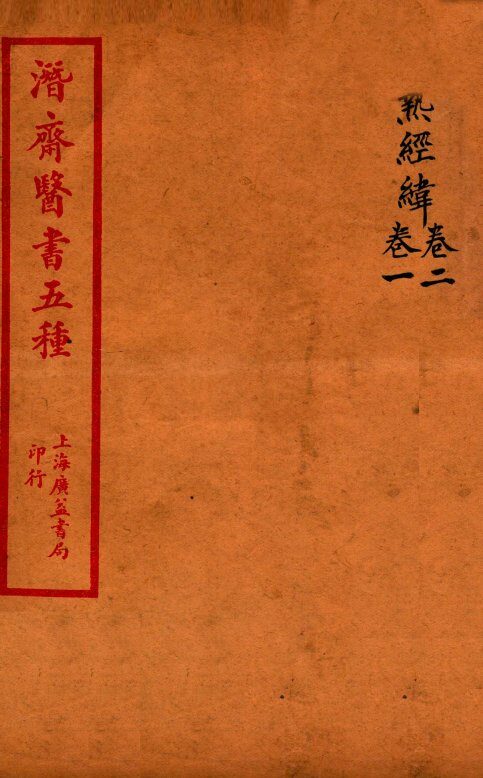 热經緯
卷二
卷一
潛齋醫書五種
上海廣益書局
印行